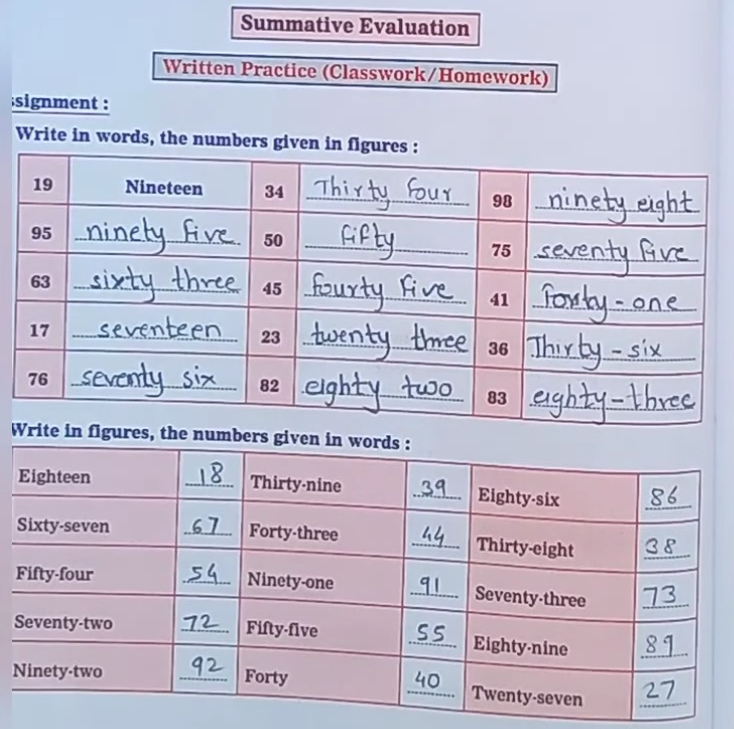 Summative Evaluation
Written Practice (Classwork/Homework)
ssignment :
Write in words, the numbers given in figures :
19 Nineteen 34 Thirty four 98 ninety eight
95 ninety five 50 fifty 75 seventy five
63 sixty three 45 fourty five 41 forty-one
17 seventeen 23 twenty three 36 Thirty-six
76 seventy six 82 eighty two 83 eighty-three
Write in figures, the numbers given in words :
Eighteen 18 Thirty-nine 39 Eighty-six 86
Sixty-seven 67 Forty-three 44 Thirty-eight 38
Fifty-four 54 Ninety-one 91 Seventy-three 73
Seventy-two 72 Fifty-five 55 Eighty-nine 89
Ninety-two 92 Forty 40 Twenty-seven 27